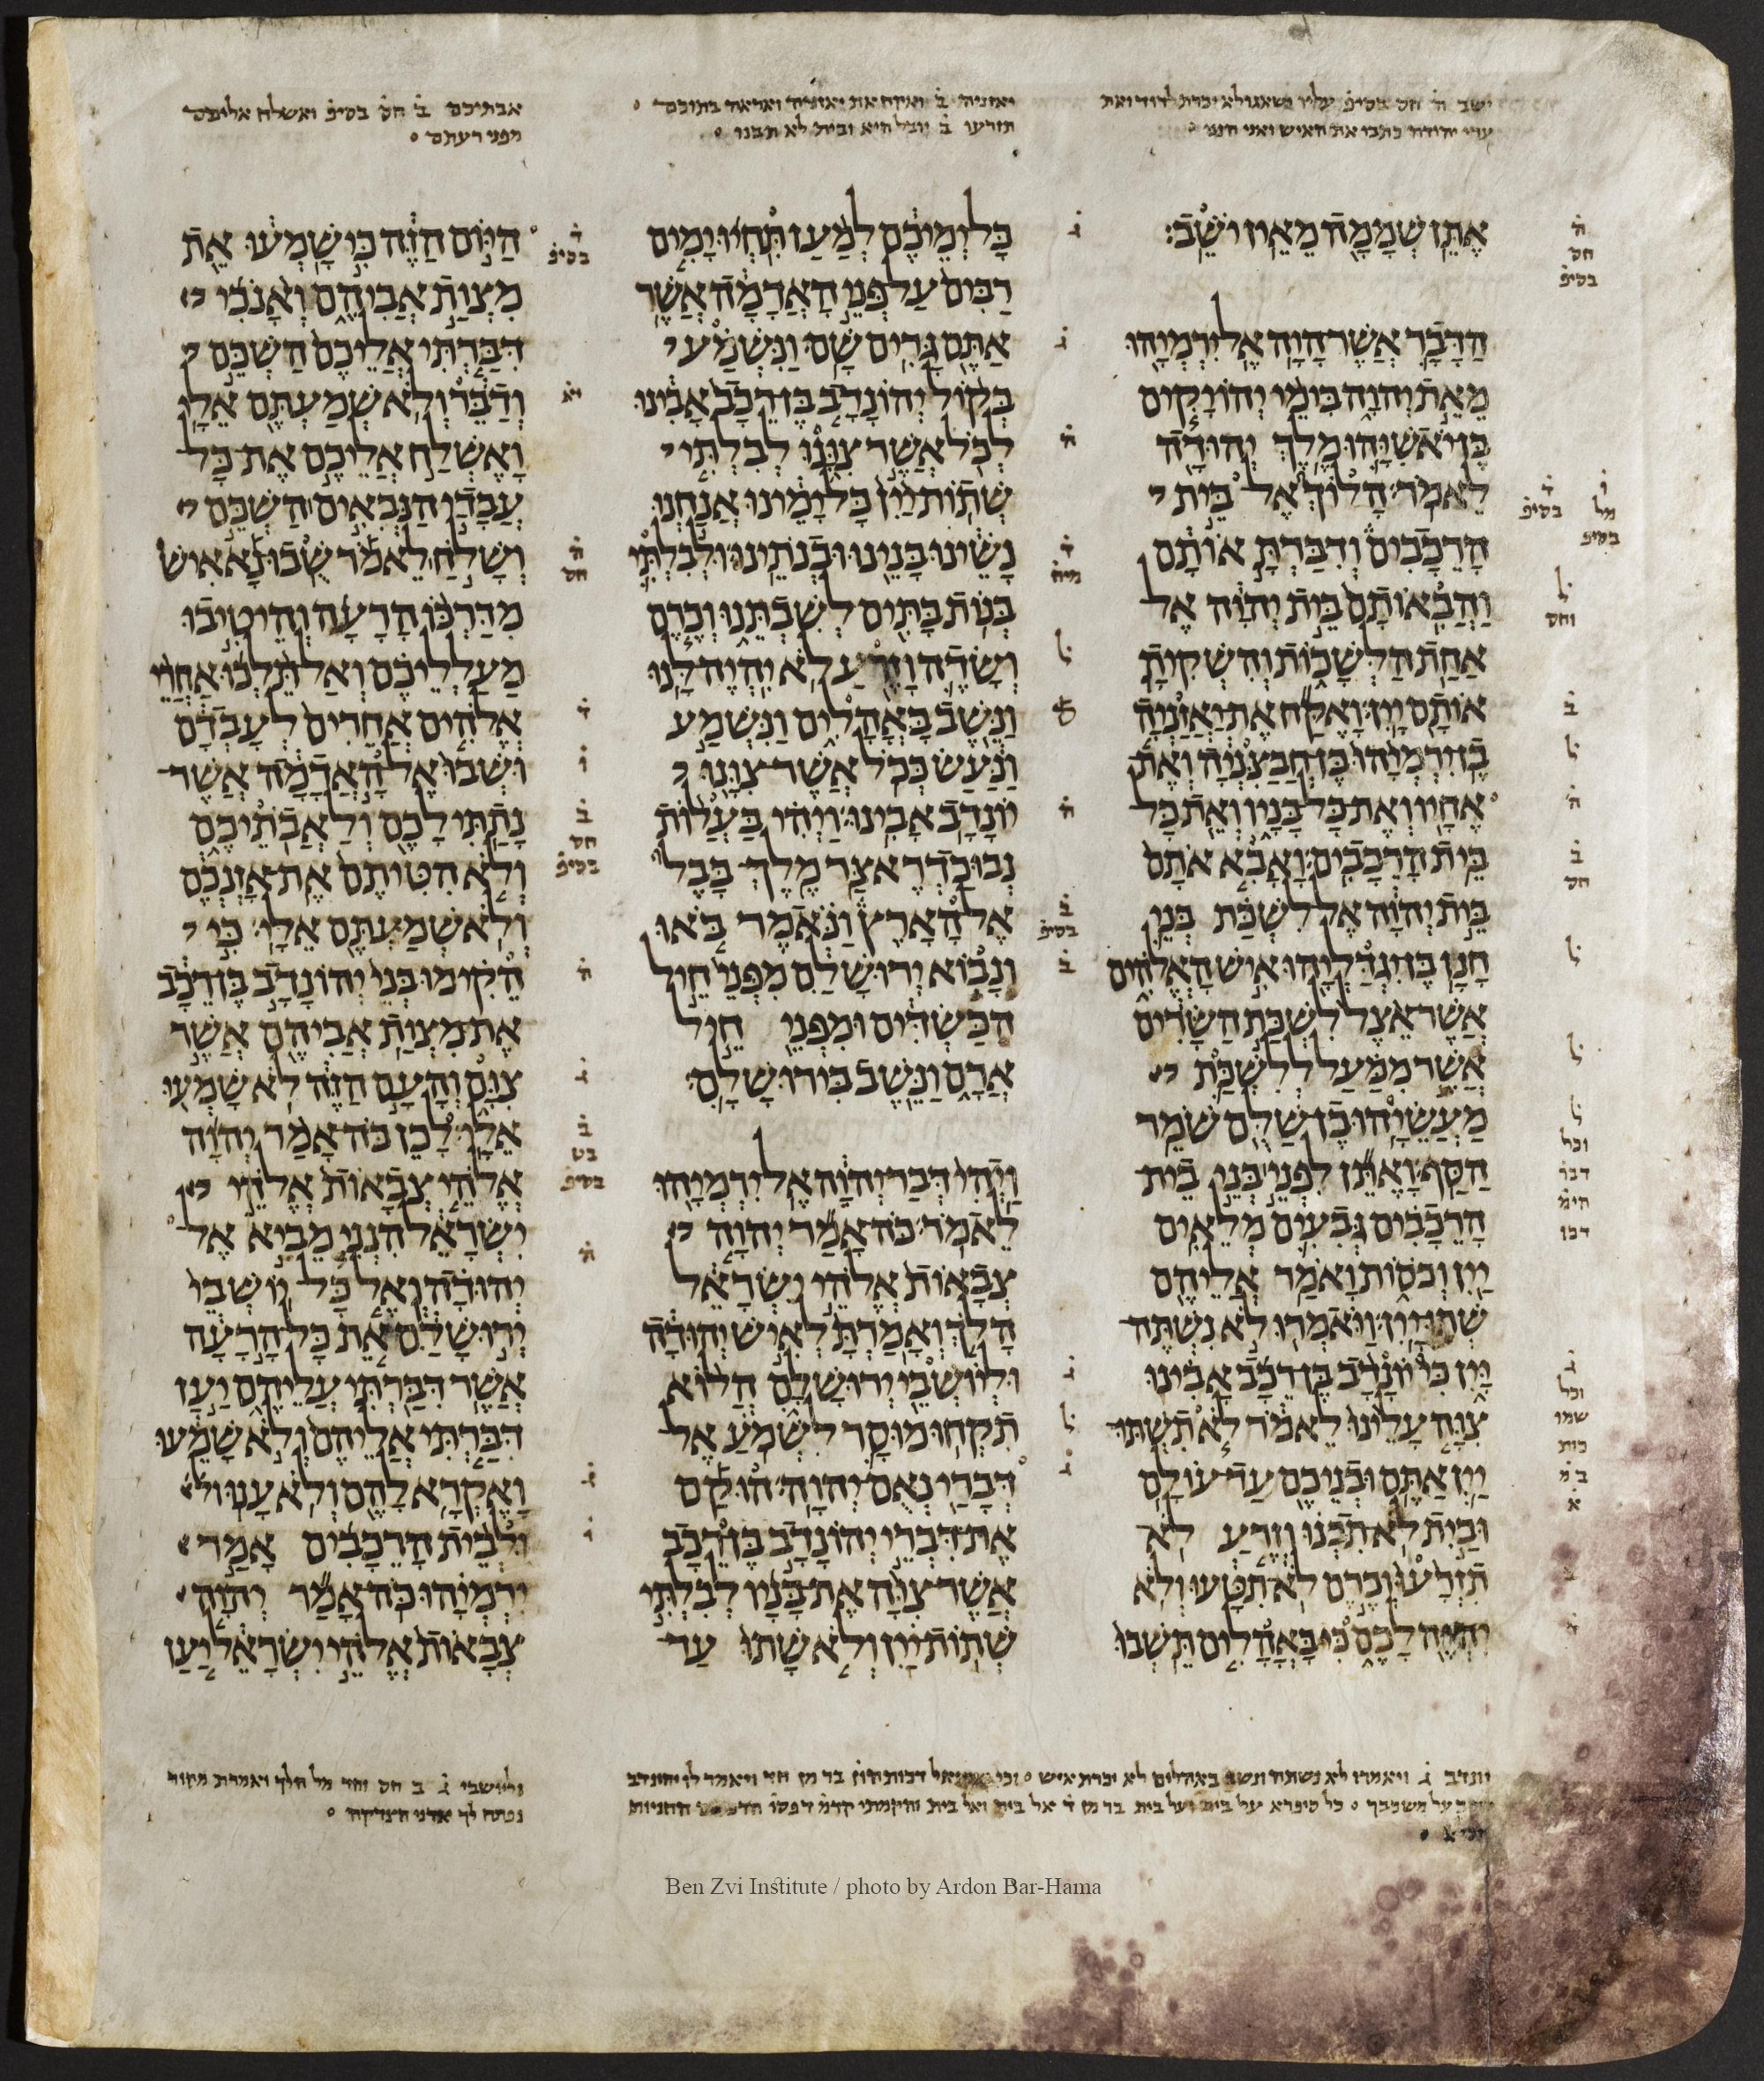 ישב ה חס בסיפ עליו כשאגו לא יכרת לדוד ואת
ערי יהודה כתבו את האיש ואני הנני
יאזניה ב ואקח את יאזניה ואראה בתוכם
תזרעו ב יובל היא ובית לא תבנו
אבתיכם ב חס בסיפ ואשלח אליכם
מפני רעתם
אתן שממה מאין ישב׃
הדבר אשר היה אל ירמיהו
מאת יהוה בימי יהויקים
בן יאשיהו מלך יהודה
לאמר׃ הלוך אל בית
הרכבים ודברת אותם
והבאותם בית יהוה אל
אחת הלשכות והשקית
אותם יין׃ ואקח את יאזניה
בן ירמיהו בן חבצניה ואת
אחיו ואת כל בניו ואת כל
בית הרכבים׃ ואבא אתם
בית יהוה אל לשכת בני
חנן בן יגדליהו איש האלהים
אשר אצל לשכת השרים
אשר ממעל ללשכת
מעשיהו בן שלם שמר
הסף׃ ואתן לפני בני בית
הרכבים גבעים מלאים
יין וכסות ואמר אליהם
שתו יין׃ ויאמרו לא נשתה
יין כי יונדב בן רכב אבינו
צוה עלינו לאמר לא תשתו
יין אתם ובניכם עד עולם׃
ובית לא תבנו וזרע לא
תזרעו וכרם לא תטעו ולא
יהיה לכם כי באהלים תשבו
כל ימיכם למען תחיו ימים
רבים על פני האדמה אשר
אתם גרים שם׃ ונשמע
בקול יהונדב בן רכב אבינו
לכל אשר צונו לבלתי
שתות יין כל ימינו אנחנו
נשינו בנינו ובנתינו׃ ולבלתי
בנות בתים לשבתנו וכרם
ושדה וזרע לא יהיה לנו׃
ונשב באהלים ונשמע
ונעש ככל אשר צונו
יונדב אבינו׃ ויהי בעלות
נבוכדראצר מלך בבל
אל הארץ ונאמר באו
ונבוא ירושלם מפני חיל
הכשדים ומפני חיל
ארם ונשב בירושלם׃
ויהי דבר יהוה אל ירמיהו
לאמר׃ כה אמר יהוה
צבאות אלהי ישראל
הלך ואמרת לאיש יהודה
וליושבי ירושלם הלוא
תקחו מוסר לשמע אל
דברי נאם יהוה׃ הוקם
את דברי יהונדב בן רכב
אשר צוה את בניו לבלתי
שתות יין ולא שתו עד
היום הזה כי שמעו את
מצות אביהם ואנכי
דברתי אליכם השכם
ודבר ולא שמעתם אלי׃
ואשלח אליכם את כל
עבדי הנבאים השכם
ושלח לאמר שבו נא איש
מדרכו הרעה והיטיבו
מעלליכם ואל תלכו אחרי
אלהים אחרים לעבדם
ושבו אל האדמה אשר
נתתי לכם ולאבתיכם
ולא הטיתם את אזנכם
ולא שמעתם אלי׃ כי
הקימו בני יהונדב בן רכב
את מצות אביהם אשר
צום והעם הזה לא שמעו
אלי׃ לכן כה אמר יהוה
אלהי צבאות אלהי
ישראל הנני מביא אל
יהודה ואל כל יושבי
ירושלם את כל הרעה
אשר דברתי עליהם יען
דברתי אליהם ולא שמעו
ואקרא להם ולא ענו׃
ולבית הרכבים אמר
ירמיהו כה אמר יהוה
צבאות אלהי ישראל יען
יונדב ג ויאמרו לא נשתה ונשב באהלים לא יכרת איש
וליושבי ג ב חס וחד מל הלך ואמרת מקור
נפתח לך אדני הצדקה
Ben Zvi Institute / photo by Ardon Bar-Hama